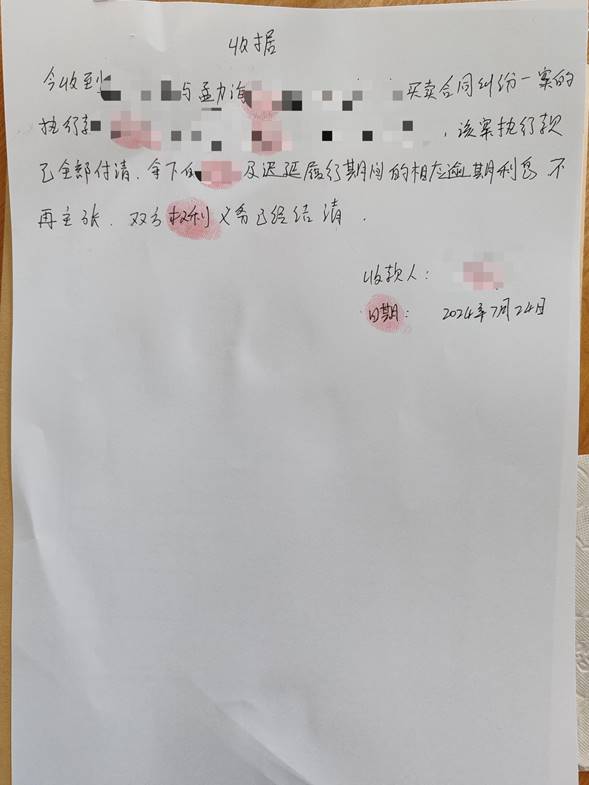 收据
今收到 与孟力海 买卖合同纠纷一案的
执行款 ,该案执行款
已全部付清.余下的 及迟延履行期间的相应逾期利息不
再主张.双方权利义务已经结清.
收款人:
日期: 2024年7月24日